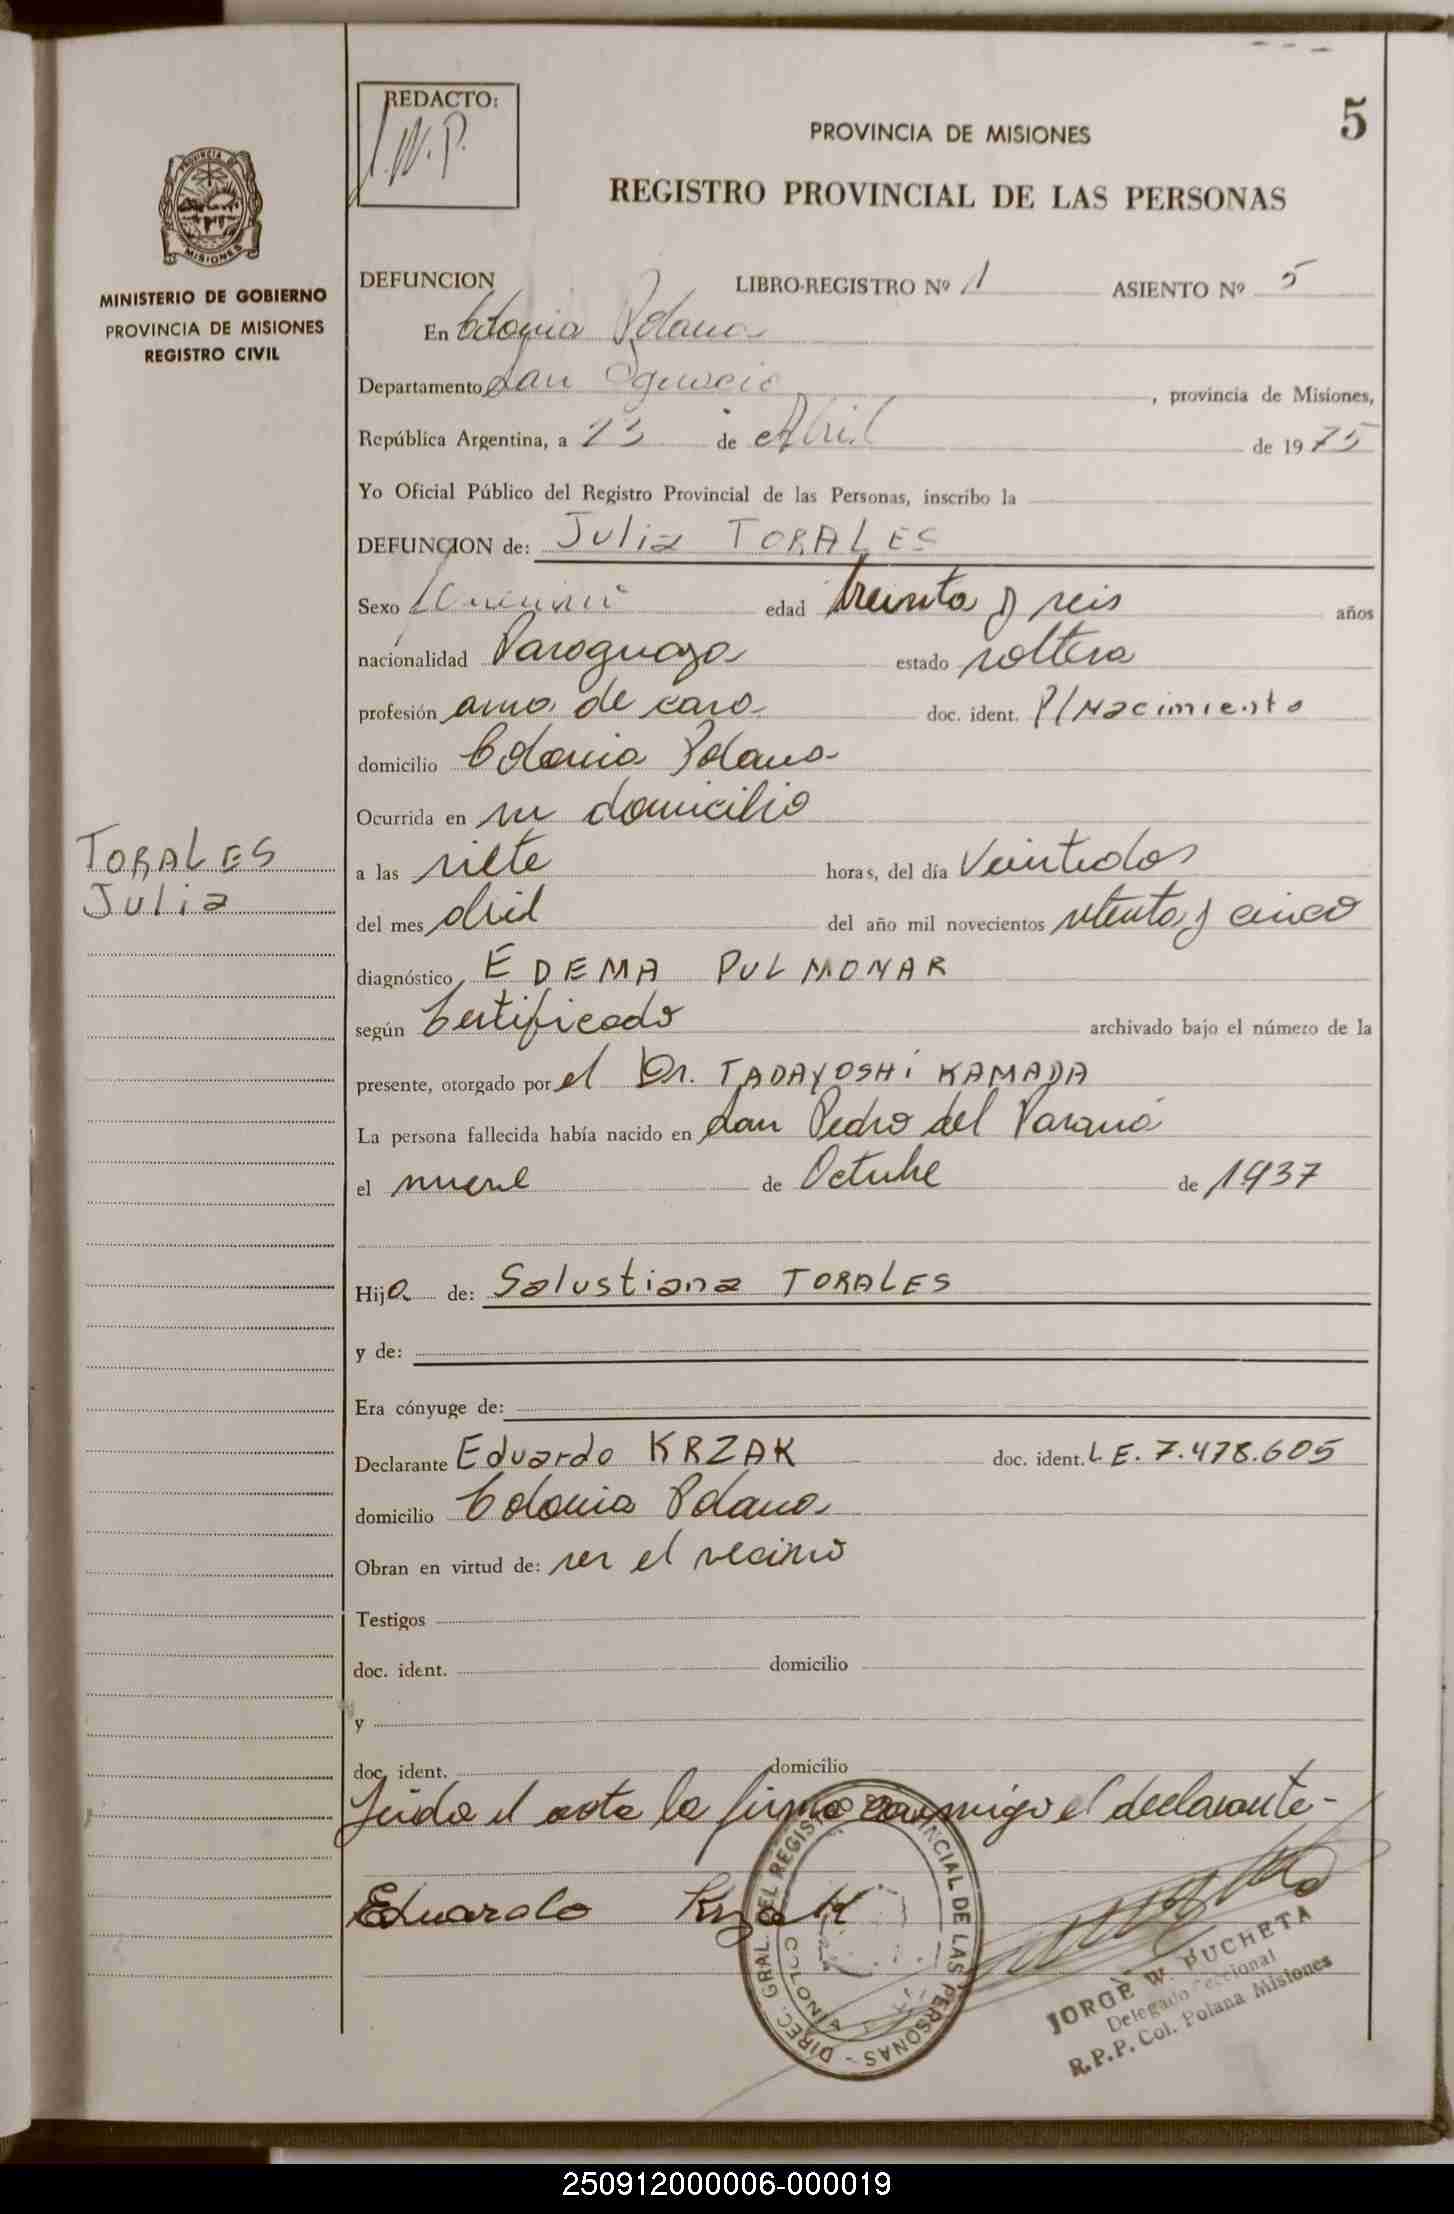 REDACTO:
J.W.P.
PROVINCIA DE MISIONES
5
REGISTRO PROVINCIAL DE LAS PERSONAS
PROVINCIA DE
MISIONES
MINISTERIO DE GOBIERNO
PROVINCIA DE MISIONES
REGISTRO CIVIL
DEFUNCION LIBRO-REGISTRO Nº 1 ASIENTO Nº 5
En Colonia Polana
Departamento San Ignacio, provincia de Misiones,
República Argentina, a 23 de Abril de 1975
Yo Oficial Público del Registro Provincial de las Personas, inscribo la
DEFUNCION de: Julia TORALES
Sexo edad treinta y seis años
nacionalidad Paraguaya estado soltera
profesión ama de casa doc. ident. P/Nacimiento
domicilio Colonia Polana
Ocurrida en su domicilio
TORALES
Julia
a las siete horas, del día Veintidos
del mes abril del año mil novecientos setenta y cinco
diagnóstico EDEMA PULMONAR
según Certificado archivado bajo el número de la
presente, otorgado por el Dr. TADAYOSHI KAMADA
La persona fallecida había nacido en San Pedro del Paraná
el nueve de Octubre de 1937
Hija de: Salustiana TORALES
y de:
Era cónyuge de:
Declarante Eduardo KRZAK doc. ident. L.E. 7.478.605
domicilio Colonia Polana
Obran en virtud de: ser el vecino
Testigos
doc. ident. domicilio
y
doc. ident. domicilio
Leida el acta la firma conmigo el declarante-
Eduardo Krzak
DIREC. GRAL. DEL REGISTRO PROVINCIAL DE LAS PERSONAS -
COLONIA
JORGE W. PUCHETA
Delegado Seccional
R.P.P. Col. Polana Misiones
250912000006-000019